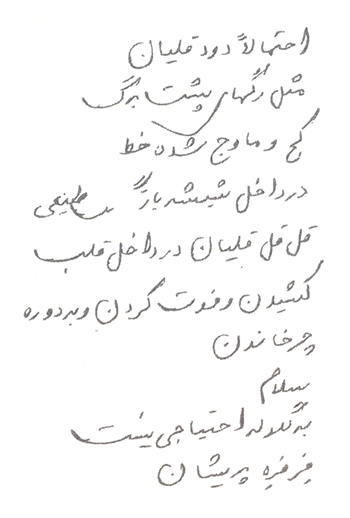 احتمالاً دود قلیان
مثل رگهای پشت برگ
کج و ماوج شدن خط
در داخل شیشه باز طبیعی
قل قل قلیان در داخل قلب
کشیدن و فوت کردن و به دوره
چرخاندن
سلام
به گلوله احتیاجی نیست
فرفره پریشان